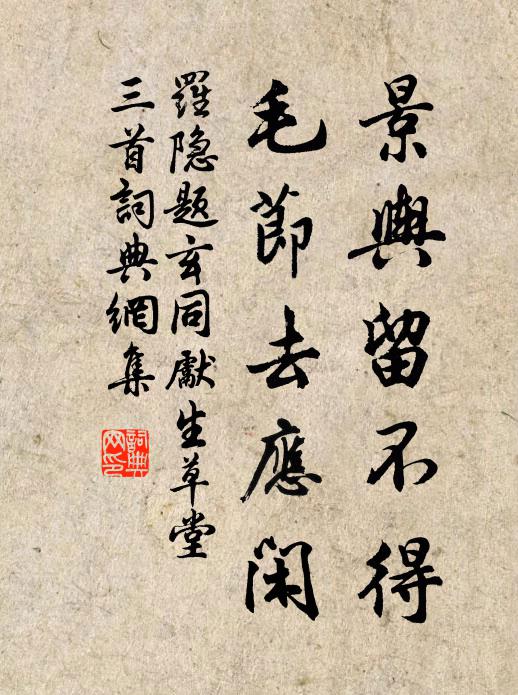 景輿留不得
毛節去應閑
羅隐題玄同獻生草堂
三首詞典網集
詞典網印